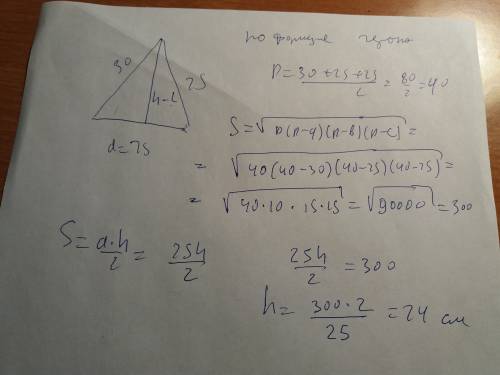 по формуле герона
30
25
h-?
a=25
P=30+25+25/2=80/2=40
S=√p(p-a)(p-b)(p-c)=
=√40(40-30)(40-25)(40-25)=
=√40·10·15·15=√90000=300
S=a·h/2=25h/2
25h/2=300
h=300·2/25=24 см